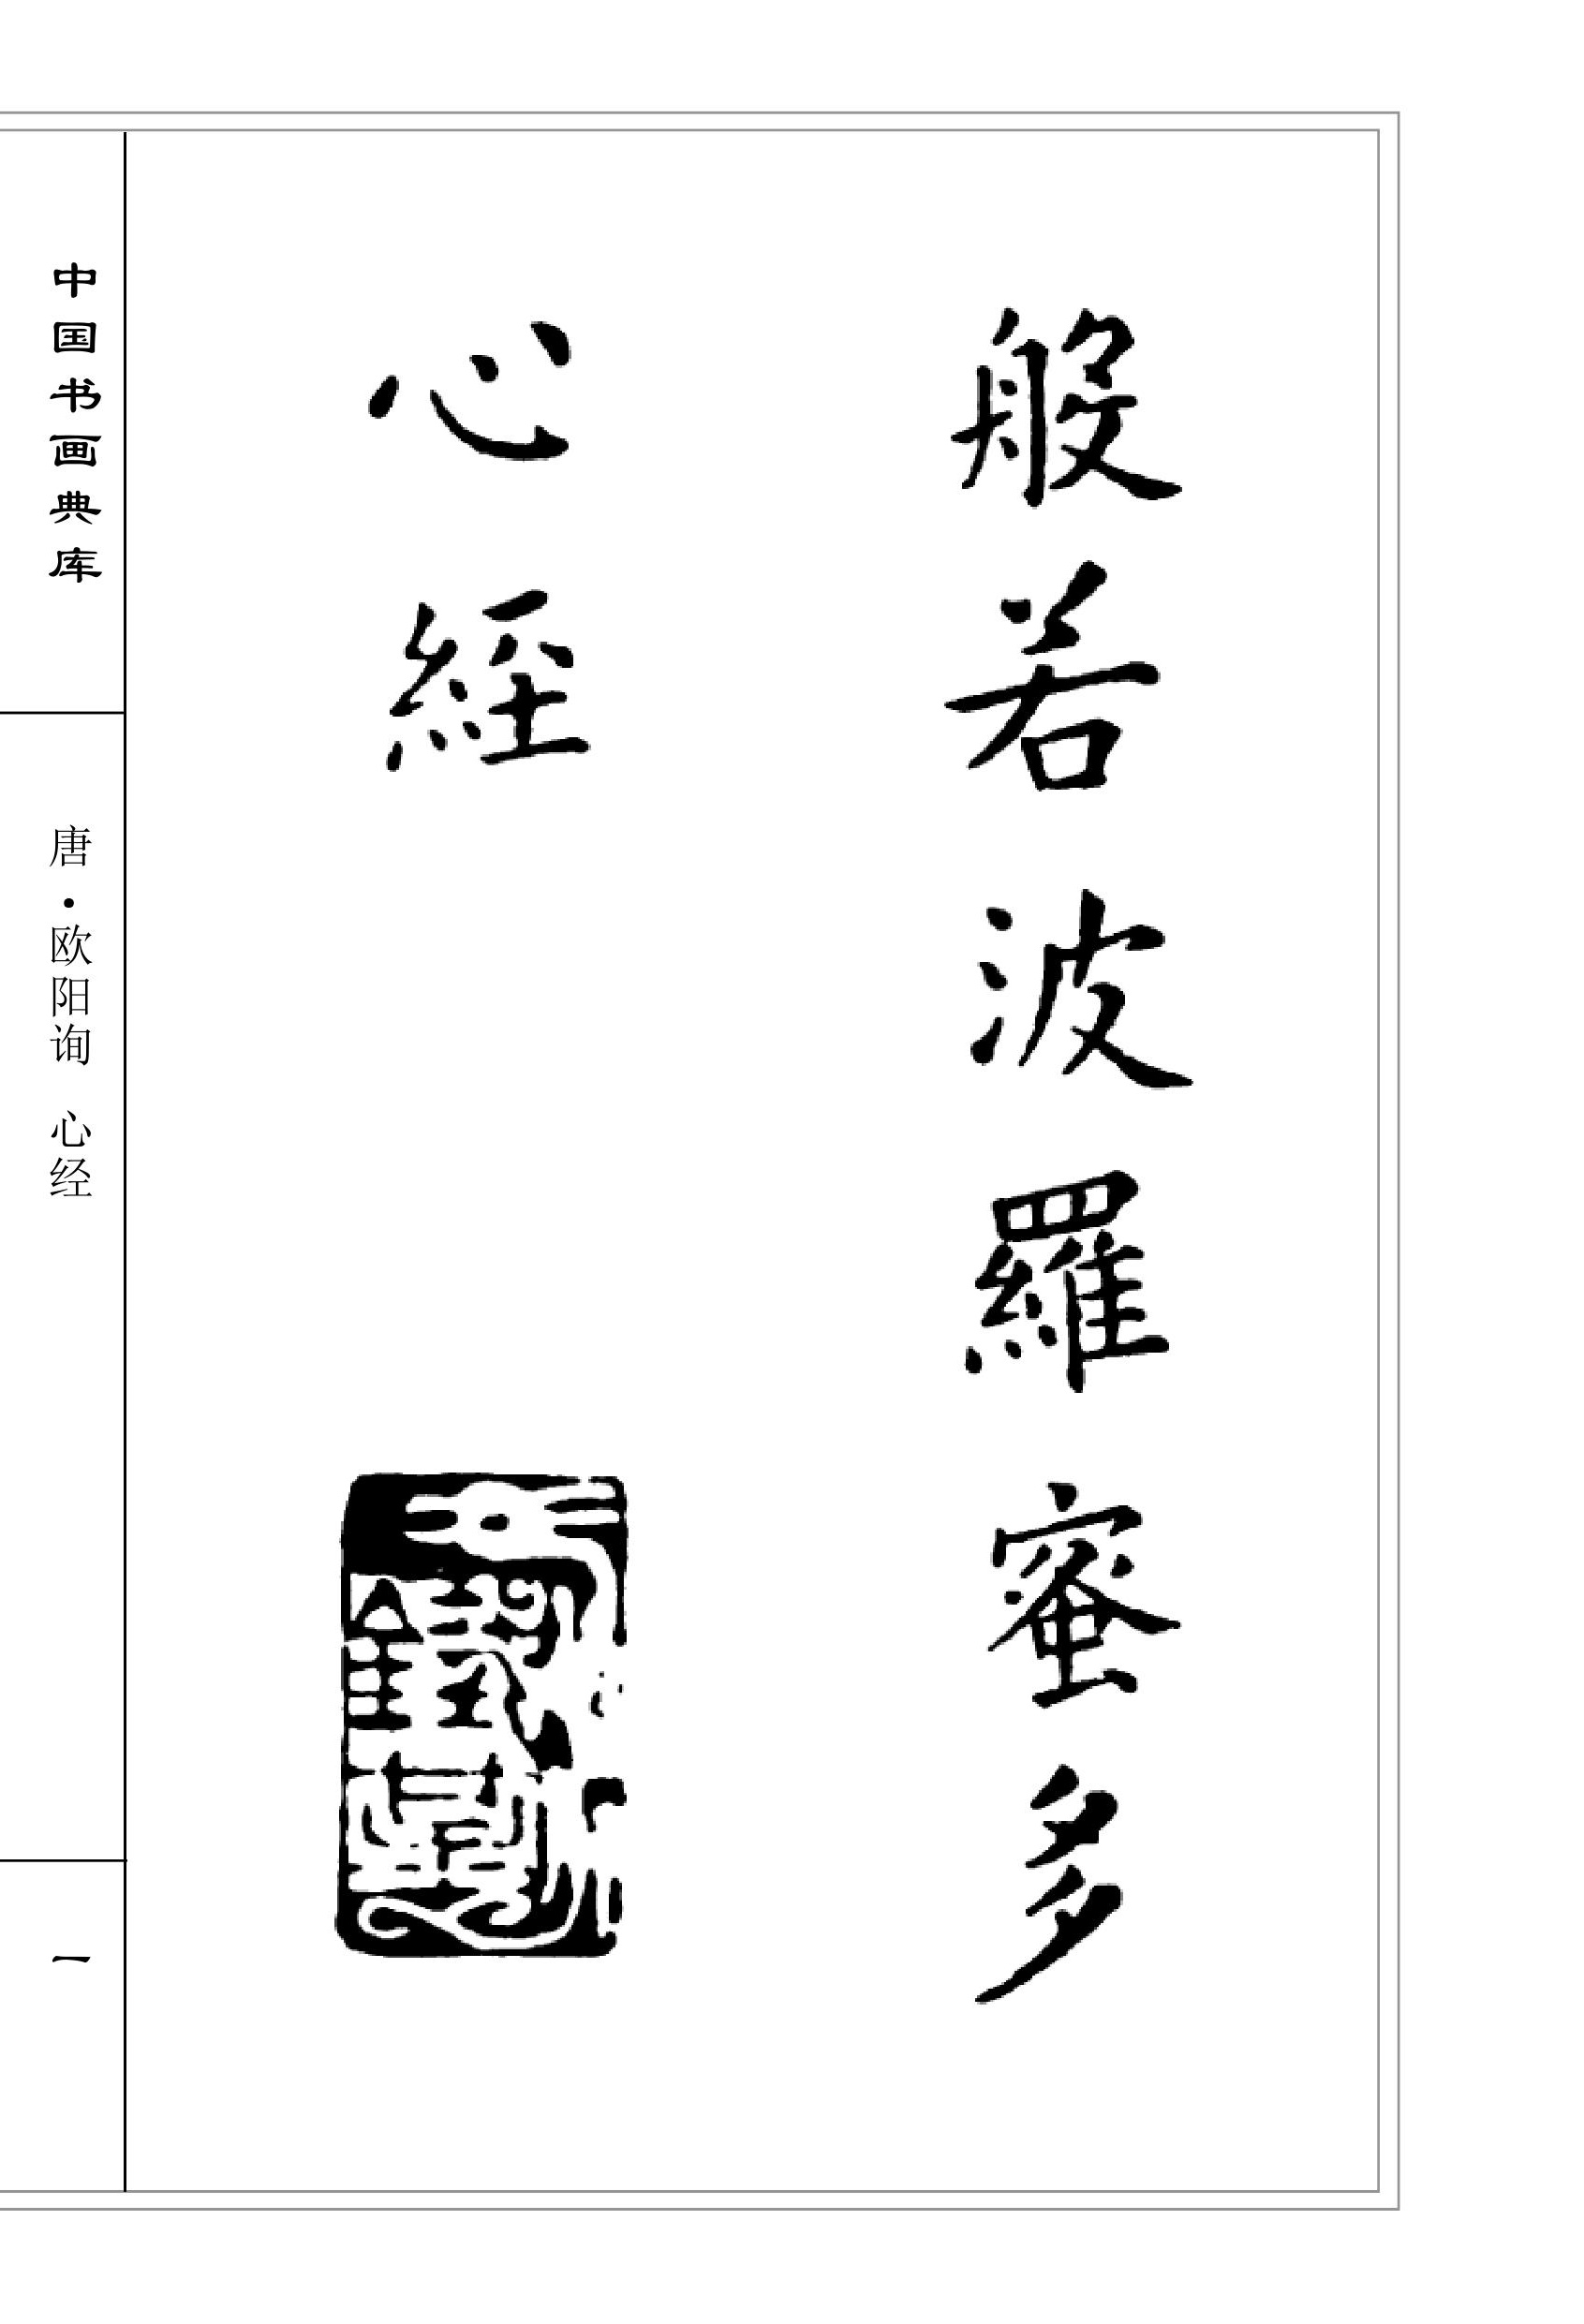 般若波羅蜜多
心經
中国书画典库
唐·欧阳询 心经
一